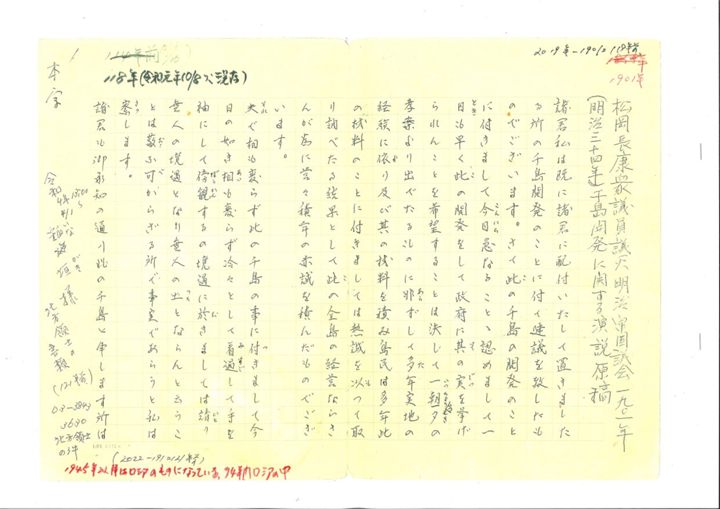 2019年-1901=118年前
1901年
118年(令和元年10/8べ現存)
松岡長康衆議員議大明治帝国議会一九〇一年
(明治三十四年)千島開発に関する演説原稿
諸君私は既に諸君に配付いたして置きました
る所の千島開発のことに付て建議を致したも
のでございます。さて此の千島の開発のこと
に付きまして今日急なることゝ認めまして一
日も早く此の開発をして政府に其の実を挙げ
られんことを希望することは決して一朝一夕の
考案より出でたるものに非ずして多年実地の
経験に依り及び其の材料を積み島民は多年此
の材料のことに付きましては熱誠を以つて取
り調べたる結果として此の全島の経営ならき
んが為に営々積年の赤誠を積んだものでござ
います。
夫で相も変らず此の千島の事に付きまして今
日の如き相も変らず冷々として看過して手を
袖にして傍観するの境遇に於きましては諸り
とは蔽ふ可からざる所で事実であらうと私は
察します。
諸君も御承知の通り此の千島と申します所は
本字
令和4年
様
北方領土
(121年前)
北方領土
の件
(2022-1901=121年前)
1945年以降はロシアのものになっている。